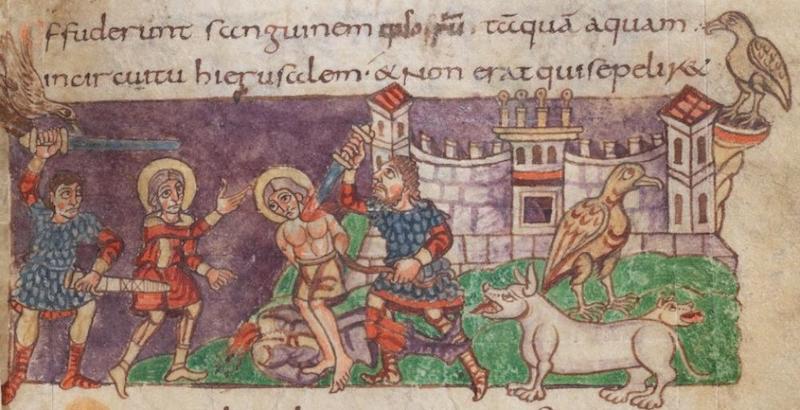 ffuderunt sanguinem tāquā aquam
incircuitu hierusalem · & non erat quisepelir&